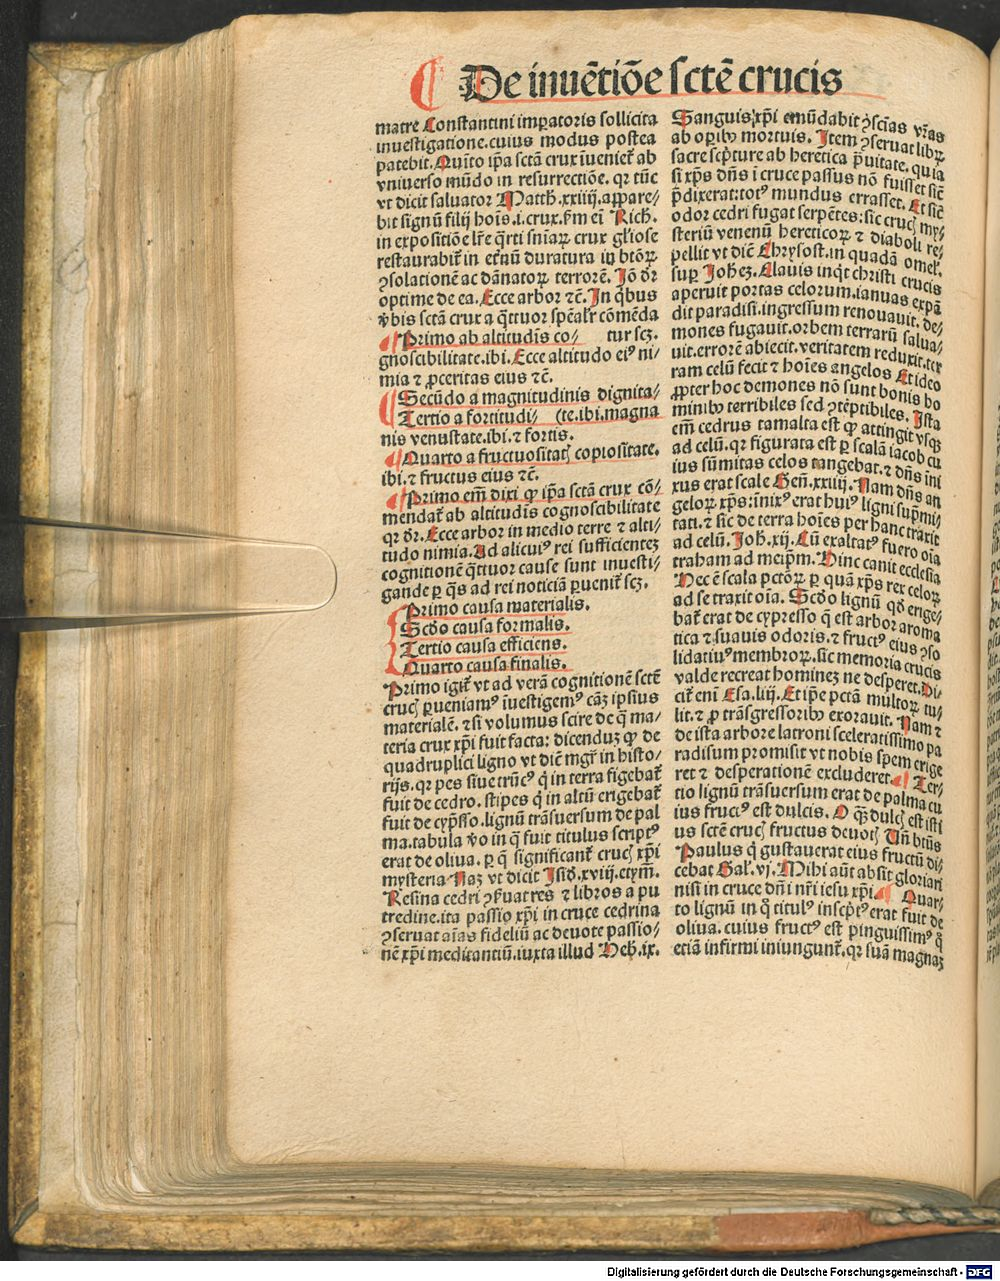 De inuētiōe sctē crucis
matre Constantini imꝑatoris sollicita
inuestigatione.cuius modus postea
patebit.Quīto ip̄a sctā crux īueniet̄ ab
vniuerso mūdo in resurrectiōe.qr tūc
vt dicit saluator Matth.xxiiij.appare/
bit signū filij hoīs.i.crux.ẜm eī Rich.
in expositiōe lr̄e q̄rti sniaꝝ crux gl̄iose
restaurabit̄ in et̄nū duratura in btōꝝ
ꝯsolationē ac dānatoꝝ terrorē. Jō dr̄
optime de ea. Ecce arbor ⁊c̄.In q̄bus
v̄bis sctā crux a q̄ttuor spēalr̄ cōmēda
¶Primo ab altitudīs co/ tur scꝫ.
gnoscibilitate.ibi.Ecce altitudo eiꝰ ni/
mia ⁊ ꝓceritas eius ⁊c̄.
¶Secūdo a magnitudinis dignita/
Tertio a fortitudi/ (te.ibi.magna
nis venustate.ibi.⁊ fortis.
¶Quarto a fructuositatꝭ copiositate.
ibi.⁊ fructus eius ⁊c̄.
¶Primo em̄ dixi ꝙ ip̄a sctā crux cō/
mendat̄ ab altitudīs cognoscibilitate
qr dr̄.Ecce arbor in medio terre ⁊ alti/
tudo nimia.Ad alicuiꝰ rei sufficienteꝫ
cognitionē q̄tuor cause sunt inuesti/
gande ꝑ q̄s ad rei noticiā ꝑuenit̄ scꝫ.
Primo causa materialis.
Scd̄o causa formalis.
Tertio causa efficiens.
Quarto causa finalis.
Primo igit̄ vt ad verā cognitionē sctē
crucꝭ ꝑueniamꝰ īuestigemꝰ cāꝫ ipsius
materialē.⁊ si volumus scire de q̄ ma/
teria crux xp̄i fuit facta: dicenduꝫ ꝙ de
quadruplici ligno vt diē mgr̄ in histo/
rijs.qr pes siue trūcꝰ q̄ in terra figebat̄
fuit de cedro.stipes q̄ in altū erigebat̄
fuit de cyp̄sso.lignū trāsuersum de pal
ma.tabula v̄o in q̄ fuit titulus scriptꝰ
erat de oliua.ꝑ q̄ significant̄ crucꝭ xp̄i
mysteria Naꝫ vt dicit Isid̄.xviij.etym̄.
Resina cedri ꝯẜuat res ⁊ libros a pu
tredine.ita passio xp̄i in cruce cedrina
ꝯseruat aīas fideliū ac deuote passio/
nē xp̄i meditantiū.iuxta illud Heb̄.ix.
Sanguis xp̄i emūdabit ꝯsciās vr̄as
ab oꝑibꝰ mortuis. Item ꝯseruat libꝝ
sacre scp̄ture ab heretica p̄uitate.quia
si xp̄s dn̄s i cruce passus nō fuisset sic̄
p̄dixerat:totꝰ mundus errasset. Et sic̄
odor cedri fugat serpētes:sic crucꝭ my/
steriū venenū hereticoꝝ ⁊ diaboli re/
pellit vt diē Chrysost.in quadā omel̄.
suꝑ Joh̄eꝫ.Clauis inq̄t christi crucis
aperuit portas celorum.ianuas expā
dit paradisi.ingressum renouauit.de/
mones fugauit.orbem terrarū salua/
uit.errorē abiecit.veritatem reduxit.ter
ram celū fecit ⁊ hoīes angelos Et ideo
ꝓpter hoc demones nō sunt bonis ho
minibꝰ terribiles sed ꝯtēptibiles. Ista
em̄ cedrus tam alta est ꝙ attingit vsqꝫ
ad celū.qr figurata est ꝑ scalā iacob cu
ius sūmitas celos tangebat.⁊ dn̄s īni
xus erat scale Gen̄.xxiiij. Nam dn̄s an
geloꝝ xp̄s:inixꝰ erat huiꝰ ligni sup̄mi/
tati.⁊ sic de terra hoīes per hanc traxit
ad celū.Joh̄.xij.Cū exaltatꝰ fuero oīa
traham ad meip̄m. Hinc canit ecclesia
Hec ē scala pctōꝝ ꝑ quā xp̄s rex celoꝝ
ad se traxit oīa. Scd̄o lignū qd̄ erige/
bat̄ erat de cypresso q̄ est arbor aroma
tica ⁊ suauis odoris.⁊ fructꝰ eius ꝯso
lidatiuꝰ membroꝝ.sic memoria crucis
valde recreat homineꝫ ne desperet.Di/
cit̄ eni Esa.liij. Et ip̄e pctā multoꝝ tu/
lit.⁊ ꝓ trāsgressoribꝰ exorauit. Nam ⁊
de ista arbore latroni sceleratissimo pa
radisum promisit vt nobis spem erige
ret ⁊ desperationē excluderet.¶Ter/
tio lignū trāsuersum erat de palma cu
ius fructꝰ est dulcis. O qꝫ dulcꝭ est isti
us sctē crucꝭ fructus deuotꝭ Vn̄ btūs
Paulus q̄ gustauerat eius fructū di/
cebat Gal̄.vj. Mihi aūt absit gloriari
nisi in cruce dn̄i nr̄i iesu xp̄i.¶ Quar/
to lignū in q̄ titulꝰ inscp̄tꝰ erat fuit de
oliua.cuius fructꝰ est pinguissimꝰ q̄
etiā infirmi iniungunt̄.qr suā magnaꝫ
Digitalisierung gefördert durch die Deutsche Forschungsgemeinschaft - DFG